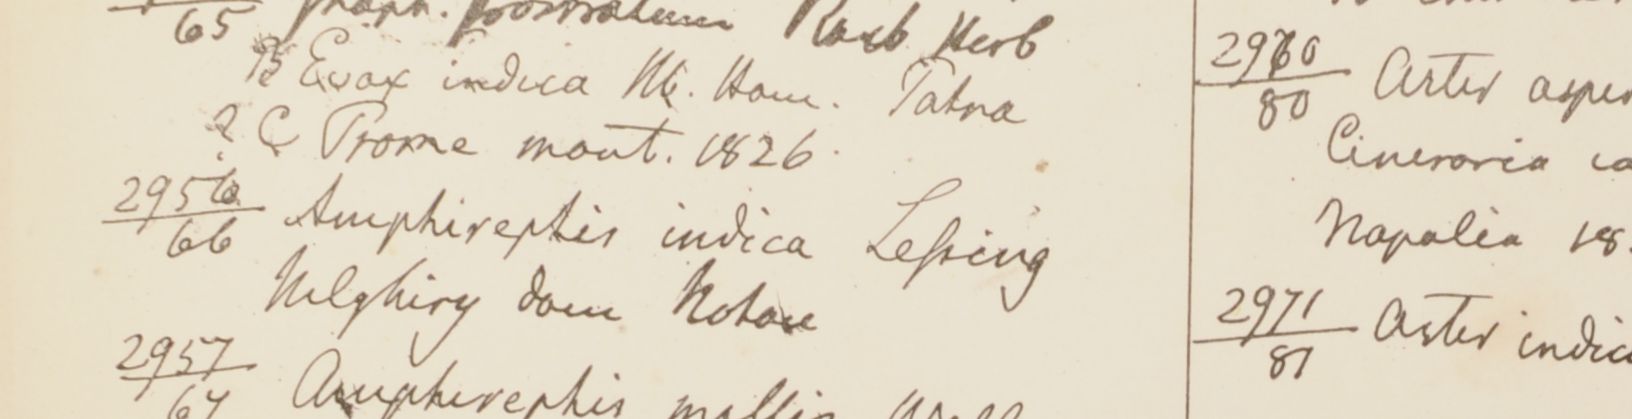 65 Graph. prostratum Roxb Herb
B Evax indica Hb. Ham. Patna
? C Prome mont. 1826.
2956
66 Amphirephis indica Lessing
Nilghiry dom Noton
2957
67 Amphirephis mollis Wall
2970
80 Aster asper
Cineraria ca
Napalia 18
2971
81 Aster indic